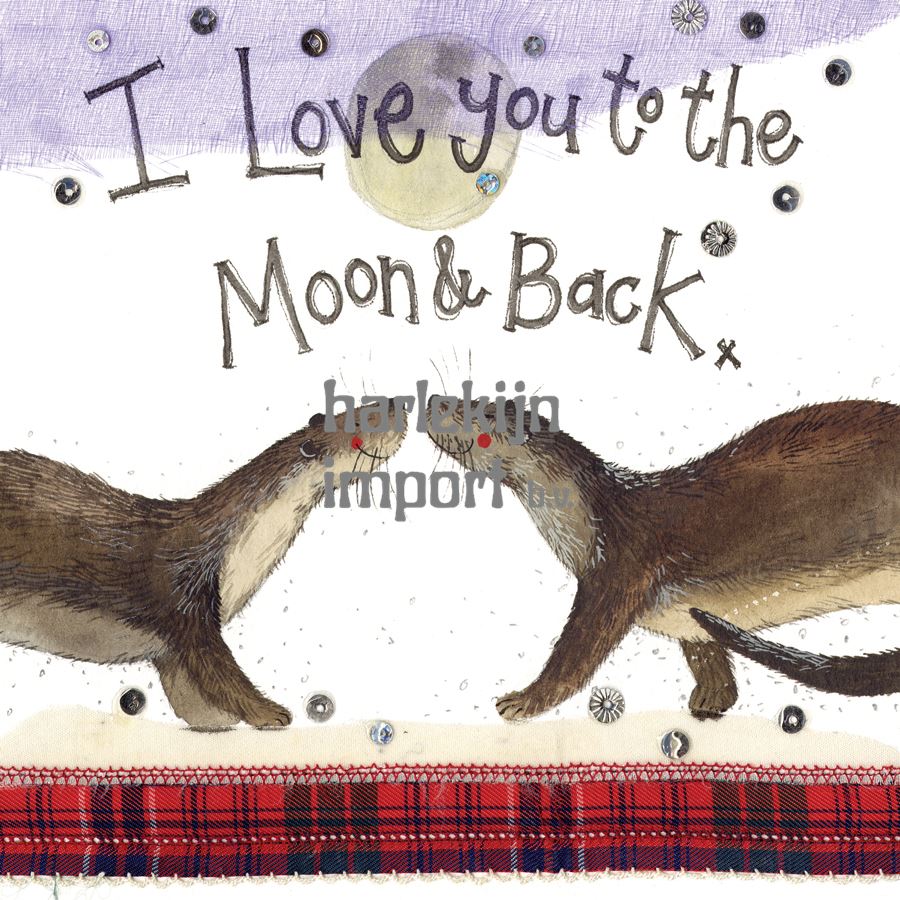 I Love you to the
Moon & Back.x
harlekijn
import b.v.